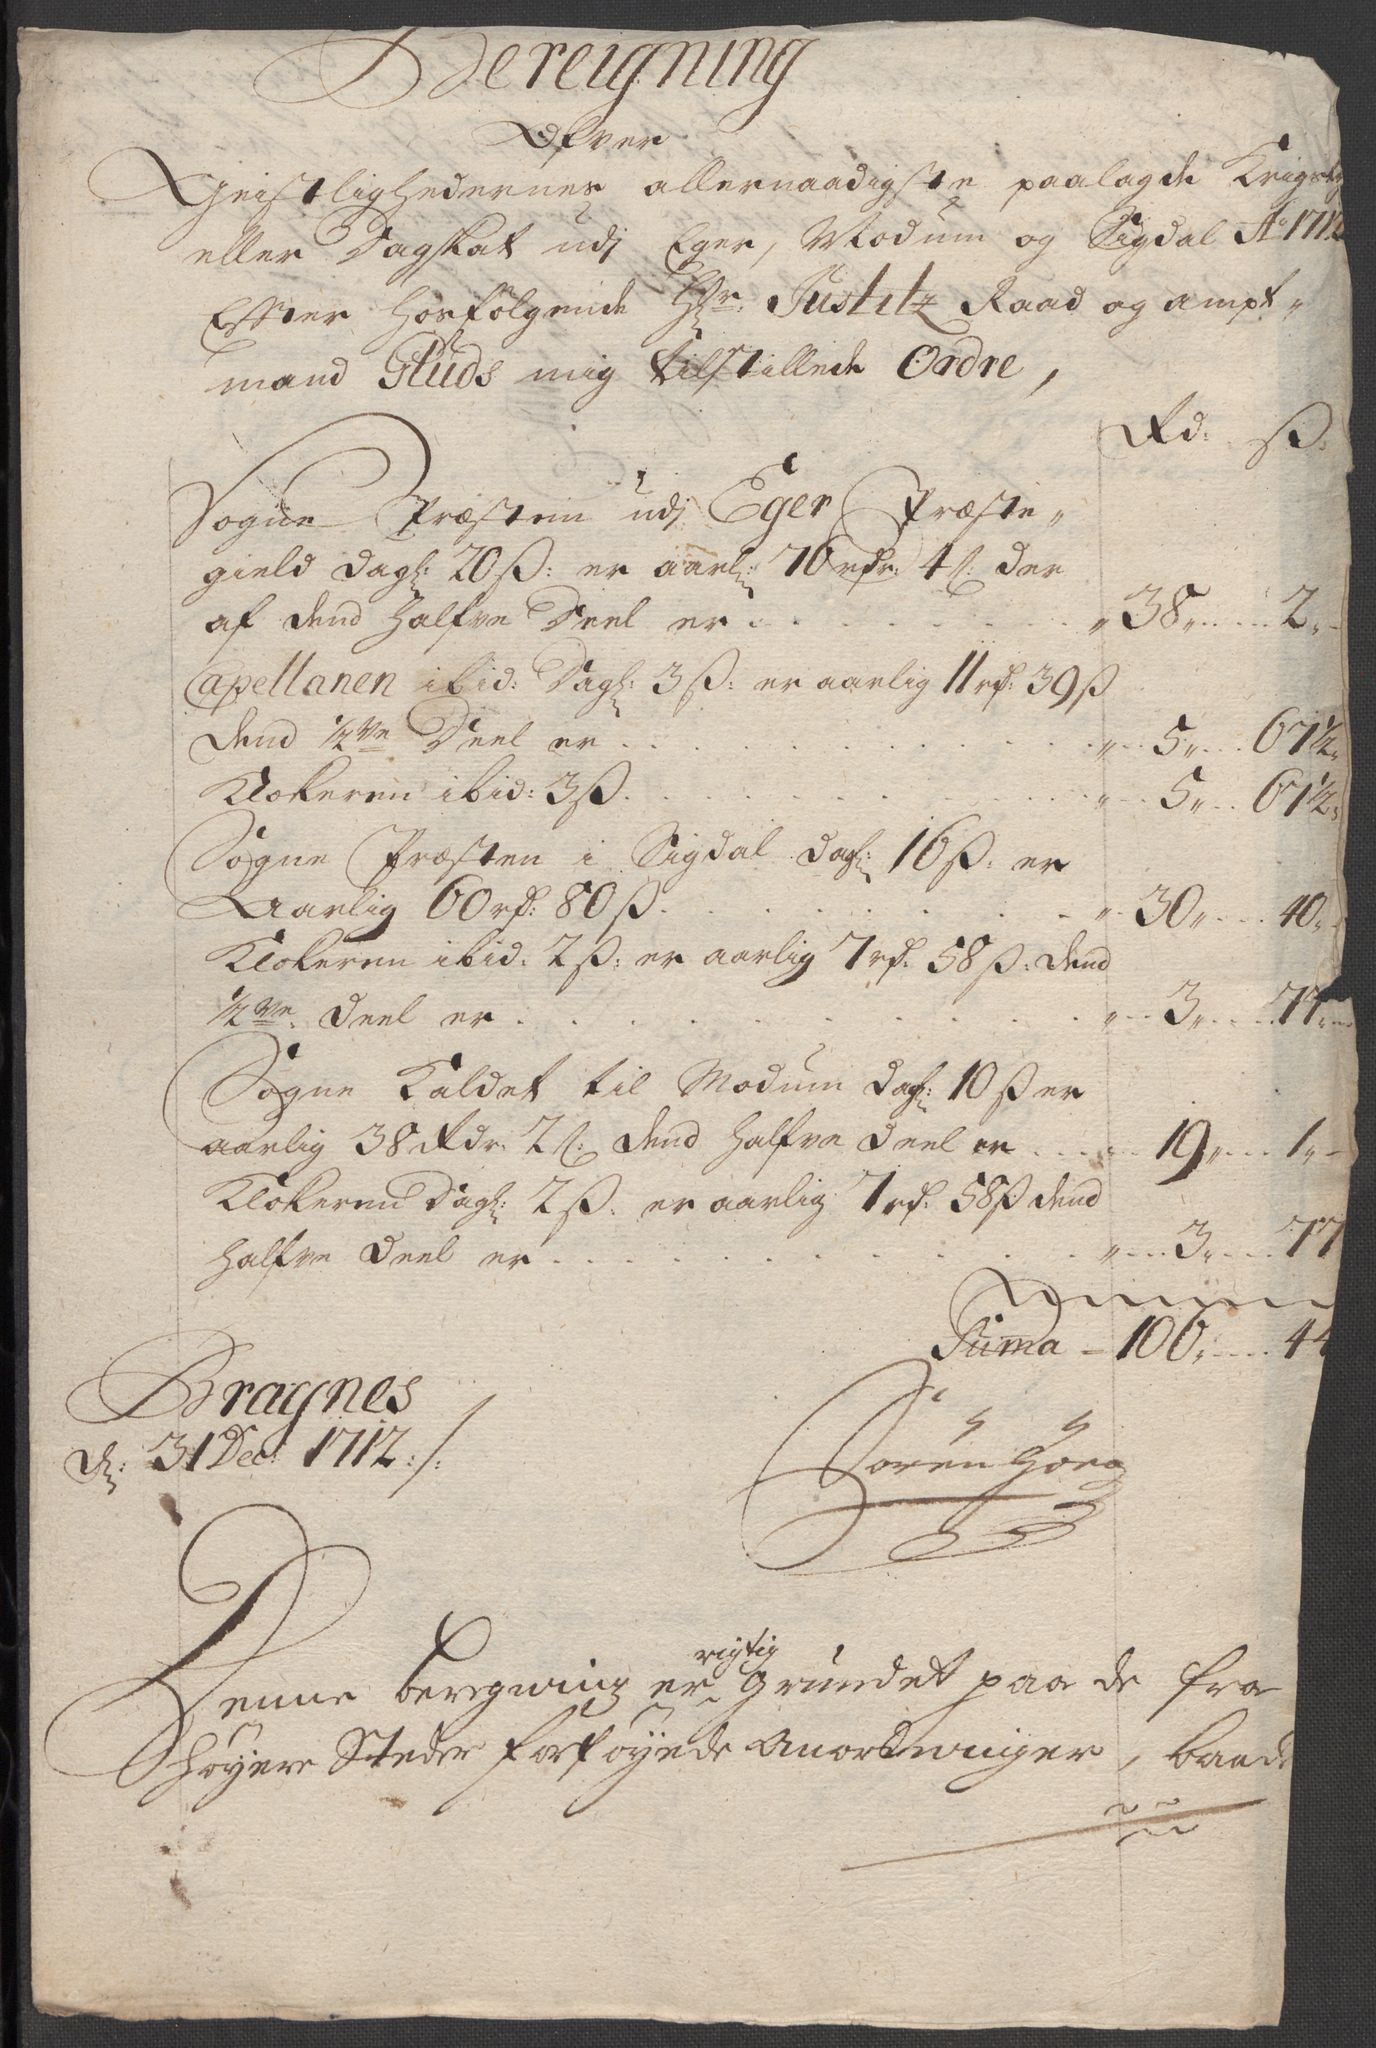 Bereigning
Ofver
Geistlighedernes allernaadigste paalagde Krigs
eller Dagskat udj Eger, Modum og Sigdal Ao 1712
Efter hosfølgende Hr: Justitz Raad og ampt-
mand Gluds mig tilstillede Ordre,
Rd: ß:
Sogne Præsten udj Eger Præste-
gield dagl: 20 ß: er aarl: 76 rdr: 4 ß: der
af dend halfve Deel er . . . . 38 „ 2 „
Capellanen ibid: Dagl: 3 ß: er aarlig 11 rd: 39 ß
dend 1/2ve Deel er . . . . 5 „ 67 1/2 „
Klokeren ibid: 3 ß . . . . 5 „ 67 1/2 „
Sogne Præsten i Sigdal dagl: 16 ß: er
Aarlig 60 rd: 80 ß . . . . 30 „ 40 „
Klokeren ibid: 2 ß: er aarlig 7 rd: 58 ß: dend
1/2ve: Deel er . . . . 3 „ 77 „
Sogne Kaldet til Modum dagl: 10 ß er
aarlig 38 Rdr: 2 ß: dend halfve Deel er . . . 19 „ 1 „
Klokeren Dagl: 2 ß: er aarlig 7 rd: 58 ß dend
halfve Deel er . . . . 3 „ 77
Suma – 106 „ 44
Bragnes
d: 31 Dec: 1712 :/:
Søren
rigtig
Denne beregning er grundet paa de fra
høyere Steder forføyede Anordninger, baade